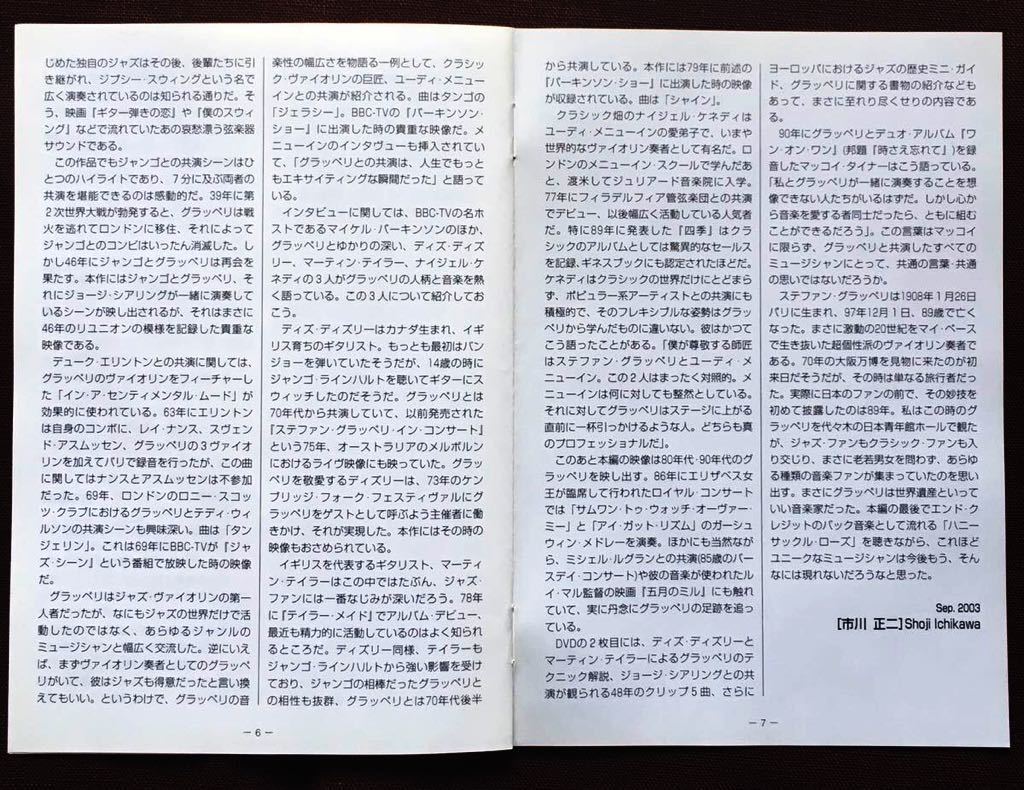 じめた独自のジャズはその後、後輩たちに引
き継がれ、ジプシー・スウィングという名で
広く演奏されているのは知られる通りだ。そ
う、映画『ギター弾きの恋』や『僕のスウィ
ング』などで流れていたあの哀愁漂う弦楽器
サウンドである。
この作品でもジャンゴとの共演シーンはひ
とつのハイライトであり、7分に及ぶ両者の
共演を堪能できるのは感動的だ。39年に第
2次世界大戦が勃発すると、グラッペリは戦
火を逃れてロンドンに移住、それによって
ジャンゴとのコンビはいったん消滅した。し
かし46年にジャンゴとグラッペリは再会を
果たす。本作にはジャンゴとグラッペリ、そ
れにジョージ・シアリングが一緒に演奏して
いるシーンが映し出されるが、それはまさに
46年のリユニオンの模様を記録した貴重な
映像である。
デューク・エリントンとの共演に関しては、
グラッペリのヴァイオリンをフィーチャーし
た「イン・ア・センティメンタル・ムード」が
効果的に使われている。63年にエリントン
は自身のコンボに、レイ・ナンス、スヴェン
ド・アスムッセン、グラッペリの3ヴァイオ
リンを加えてパリで録音を行ったが、この曲
に関してはナンスとアスムッセンは不参加
だった。69年、ロンドンのロニー・スコッ
ツ・クラブにおけるグラッペリとテディ・ウィ
ルソンの共演シーンも興味深い。曲は「タン
ジェリン」。これは69年にBBC-TVが『ジャ
ズ・シーン』という番組で放映した時の映像
だ。
グラッペリはジャズ・ヴァイオリンの第一
人者だったが、なにもジャズの世界だけで活
動したのではなく、あらゆるジャンルの
ミュージシャンと幅広く交流した。逆にいえ
ば、まずヴァイオリン奏者としてのグラッペ
リがいて、彼はジャズも得意だったと言い換
えてもいい。というわけで、グラッペリの音
－6－
楽性の幅広さを物語る一例として、クラシッ
ク・ヴァイオリンの巨匠、ユーディ・メニュー
インとの共演が紹介される。曲はタンゴの
「ジェラシー」。BBC-TVの『パーキンソン・
ショー』に出演した時の貴重な映像だ。メ
ニューインのインタヴューも挿入されてい
て、「グラッペリとの共演は、人生でもっと
もエキサイティングな瞬間だった」と語って
いる。
インタビューに関しては、BBC-TVの名ホ
ストであるマイケル・パーキンソンのほか、
グラッペリとゆかりの深い、ディズ・ディズ
リー、マーティン・テイラー、ナイジェル・ケ
ネディの3人がグラッペリの人柄と音楽を熱
く語っている。この3人について紹介してお
こう。
ディズ・ディズリーはカナダ生まれ、イギ
リス育ちのギタリスト。もっとも最初はバン
ジョーを弾いていたそうだが、14歳の時に
ジャンゴ・ラインハルトを聴いてギターにス
ウィッチしたのだそうだ。グラッペリとは
70年代から共演していて、以前発売された
『ステファン・グラッペリ・イン・コンサート』
という75年、オーストラリアのメルボルン
におけるライヴ映像にも映っていた。グラッ
ペリを敬愛するディズリーは、73年のケン
ブリッジ・フォーク・フェスティヴァルにグ
ラッペリをゲストとして呼ぶよう主催者に働
きかけ、それが実現した。本作にはその時の
映像もおさめられている。
イギリスを代表するギタリスト、マーティ
ン・テイラーはこの中ではたぶん、ジャズ・
ファンには一番なじみが深いだろう。78年
に『テイラー・メイド』でアルバム・デビュー、
最近も精力的に活動しているのはよく知られ
るところだ。ディズリー同様、テイラーも
ジャンゴ・ラインハルトから強い影響を受け
ており、ジャンゴの相棒だったグラッペリと
の相性も抜群、グラッペリとは70年代後半
から共演している。本作には79年に前述の
『パーキンソン・ショー』に出演した時の映像
が収録されている。曲は「シャイン」。
クラシック畑のナイジェル・ケネディは
ユーディ・メニューインの愛弟子で、いまや
世界的なヴァイオリン奏者として有名だ。ロ
ンドンのメニューイン・スクールで学んだあ
と、渡米してジュリアード音楽院に入学。
77年にフィラデルフィア管弦楽団との共演
でデビュー、以後幅広く活動している人気者
だ。特に89年に発表した『四季』はクラ
シックのアルバムとしては驚異的なセールス
を記録、ギネスブックにも認定されたほどだ。
ケネディはクラシックの世界だけにとどまら
ず、ポピュラー系アーティストとの共演にも
積極的で、そのフレキシブルな姿勢はグラッ
ペリから学んだものに違いない。彼はかつて
こう語ったことがある。「僕が尊敬する師匠
はステファン・グラッペリとユーディ・メ
ニューイン。この2人はまったく対照的。メ
ニューインは何に対しても整然としている。
それに対してグラッペリはステージに上がる
直前に一杯引っかけるような人。どちらも真
のプロフェッショナルだ」。
このあと本編の映像は80年代・90年代のグ
ラッペリを映し出す。86年にエリザベス女
王が臨席して行われたロイヤル・コンサート
では「サムワン・トゥ・ウォッチ・オーヴァー・
ミー」と「アイ・ガット・リズム」のガーシュ
ウィン・メドレーを演奏。ほかにも当然なが
ら、ミシェル・ルグランとの共演(85歳のバー
スデイ・コンサート)や彼の音楽が使われたルイ
・マル監督の映画『五月のミル』にも触れ
ていて、実に丹念にグラッペリの足跡を追っ
ている。
DVDの2枚目には、ディズ・ディズリーと
マーティン・テイラーによるグラッペリのテ
クニック解説、ジョージ・シアリングとの共
演が観られる48年のクリップ5曲、さらに
ヨーロッパにおけるジャズの歴史ミニ・ガイ
ド、グラッペリに関する書物の紹介なども
あって、まさに至れり尽くせりの内容であ
る。
90年にグラッペリとデュオ・アルバム『ワ
ン・オン・ワン』(邦題『時さえ忘れて』)を録
音したマッコイ・タイナーはこう語っている。
「私とグラッペリが一緒に演奏することを想
像できない人たちがいるはずだ。しかし心か
ら音楽を愛する者同士だったら、ともに組む
ことができるだろう」。この言葉はマッコイ
に限らず、グラッペリと共演したすべての
ミュージシャンにとって、共通の言葉・共通
の思いではないだろうか。
ステファン・グラッペリは1908年1月26日
パリに生まれ、97年12月1日、89歳で亡く
なった。まさに激動の20世紀をマイ・ペース
で生き抜いた超個性派のヴァイオリン奏者で
ある。70年の大阪万博を見物に来たのが初
来日だそうだが、その時は単なる旅行者だっ
た。実際に日本のファンの前で、その妙技を
初めて披露したのは89年。私はこの時のグ
ラッペリを代々木の日本青年館ホールで観た
が、ジャズ・ファンもクラシック・ファンも入
り交じり、まさに老若男女を問わず、あらゆ
る種類の音楽ファンが集まっていたのを思い
出す。まさにグラッペリは世界遺産といって
いい音楽家だった。本編の最後でエンド・ク
レジットのバック音楽として流れる「ハニー
サックル・ローズ」を聴きながら、これほど
ユニークなミュージシャンは今後もう、そん
なには現れないだろうなと思った。
Sep. 2003
[市川 正二] Shoji Ichikawa
－7－